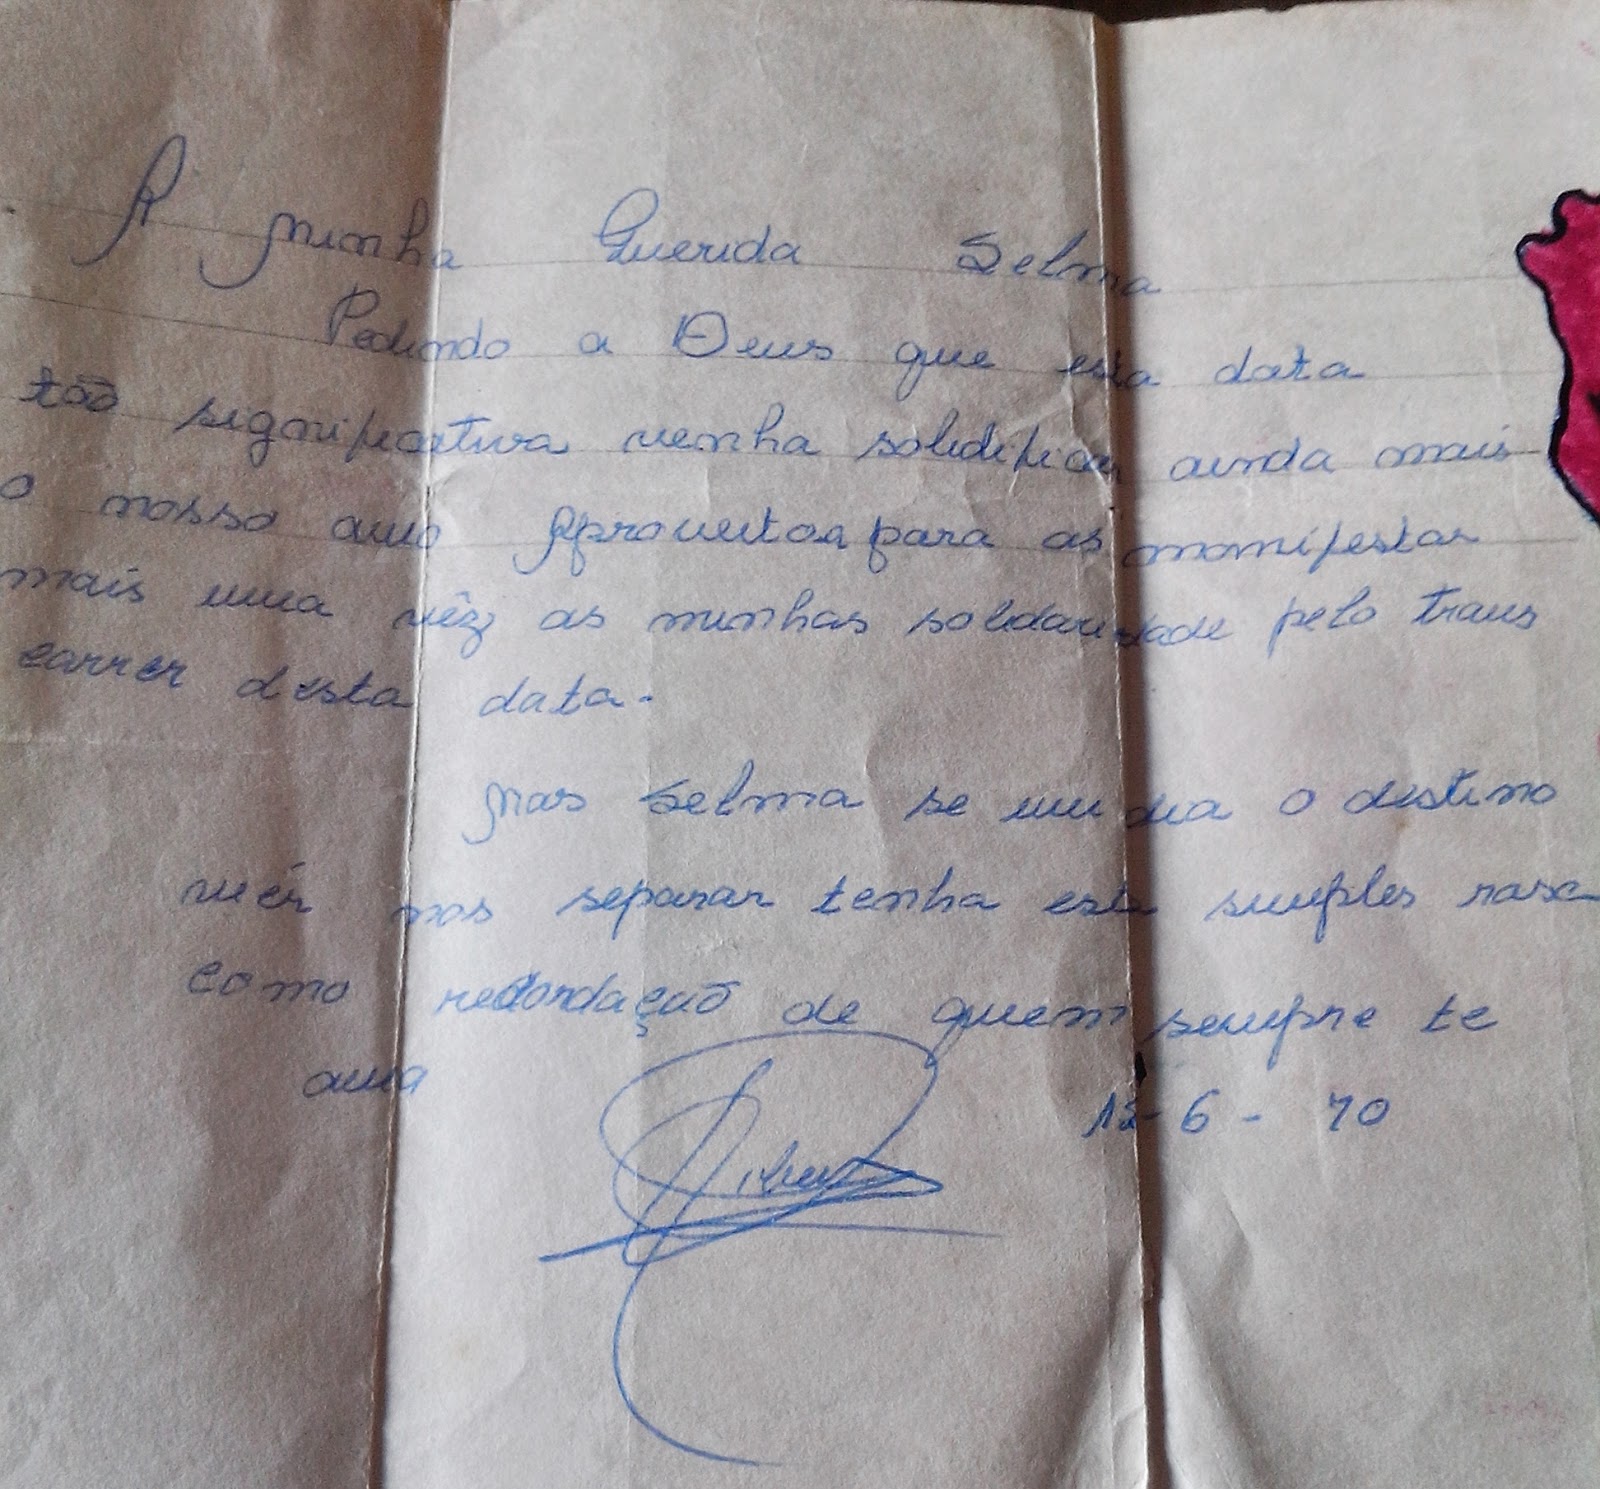 A minha Querida Selma
Pedindo a Deus que esta data
tão significativa venha solidificar ainda mais
o nosso amo Aproveitoa para as manifestar
mais uma vêz as minhas solidariedade pelo trans
correr desta data.
Mas Selma se um dia o destino
viér nos separar tenha esta simples rosa
como recordação de quem sempre te
ama
12-6-70